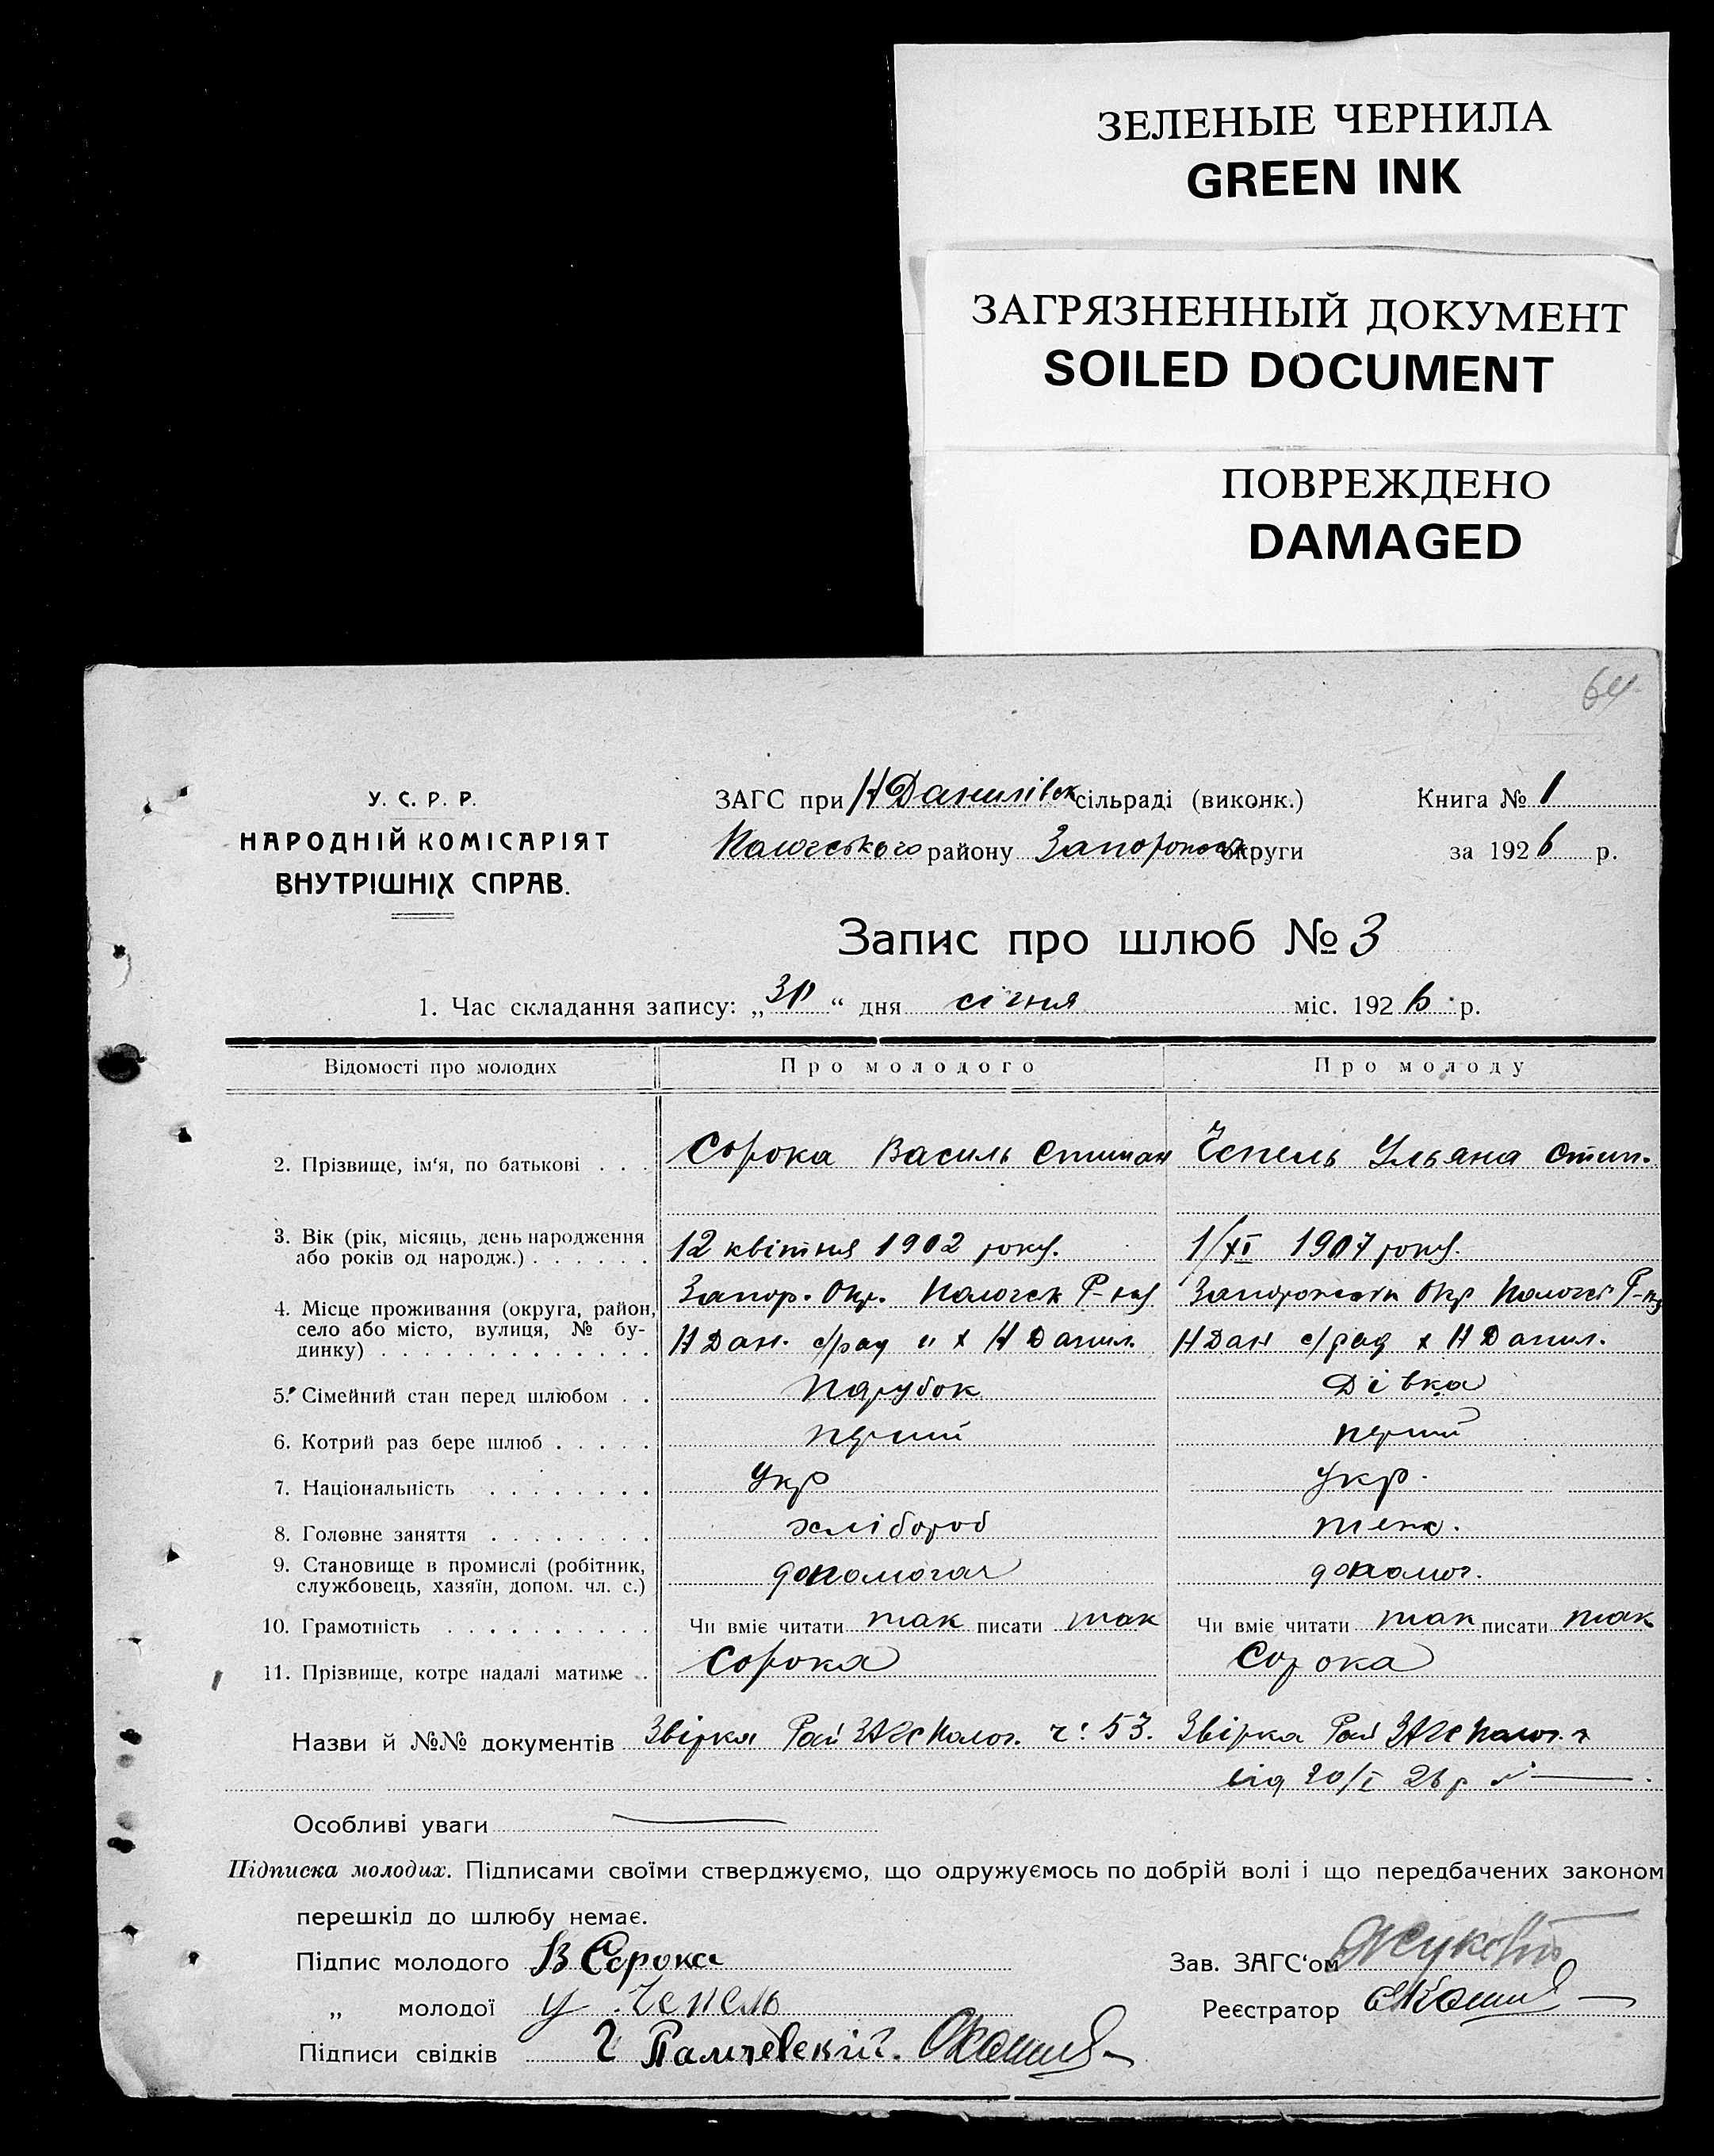 ЗЕЛЕНЫЕ ЧЕРНИЛА
GREEN INK
ЗАГРЯЗНЕННЫЙ ДОКУМЕНТ
SOILED DOCUMENT
ПОВРЕЖДЕНО
DAMAGED
64
У. С. Р. Р.
НАРОДНІЙ КОМІСАРІЯТ
ВНУТРІШНІХ СПРАВ.
ЗАГС при Н Данилівск сільраді (виконк.)
Пологського району Запорожск округи
Книга № 1
за 1926 р.
Запис про шлюб № 3
1. Час складання запису: „ “ дня січня міс. 1926 р.
Відомості про молодих Про молодого Про молоду
2. Прізвище, ім'я, по батькові . . . Сорока Василь Степан Чепель Ульяна Степ.
3. Вік (рік, місяць, день народження
або років од народж.) . . . . . . 12 квітня 1902 року. 1/XI 1907 року.
4. Місце проживання (округа, район, Запор. Окр. Пологск Р-ну Запорожск Окр Пологсь Р-ну
село або місто, вулиця, № бу-
динку) . . . . . . . . . . . . . Н Дан. с/рад х Н Данил. Н Дан с/рад х Н Данил.
5. Сімейний стан перед шлюбом . . Парубок Дівка
6. Котрий раз бере шлюб . . . . . перший перший
7. Національність . . . . . . . . Укр Укр.
8. Головне заняття . . . . . . . . хлібороб теж.
9. Становище в промислі (робітник,
службовець, хазяїн, допом. чл. с.) допомогач допомог.
10. Грамотність . . . . . . . . . . Чи вміє читати так писати так Чи вміє читати так писати так
11. Прізвище, котре надалі матиме . . Сорока Сорока
Назви й №№ документів Звірка Рай ЗАГС Полог. ч: 53. Звірка Рай ЗАГС Полог. ч
від 20/I 26 р
Особливі уваги
Підписка молодих. Підписами своїми стверджуємо, що одружуємось по добрій волі і що передбачених законом
перешкід до шлюбу немає.
Підпис молодого В Сорока Зав. ЗАГС'ом
„ молодої У Чепель Реєстратор
Підписи свідків